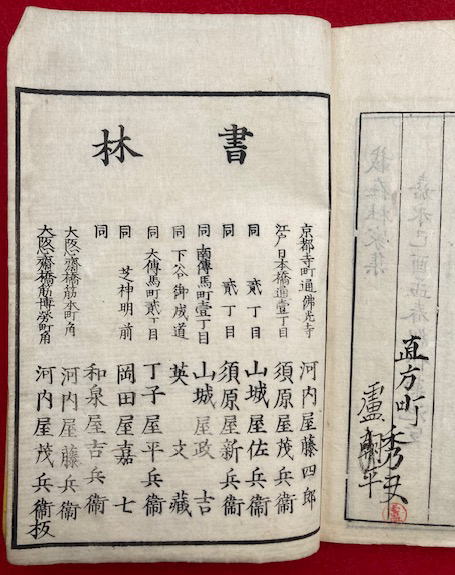 直方町
書林
京都寺町通佛光寺 河内屋藤四郎
江戸日本橋通壹丁目 須原屋茂兵衞
同 貳丁目 山城屋佐兵衞
同 貳丁目 須原屋新兵衞
同 南傳馬町壹丁目 山城屋政吉
同 下谷御成道 英文藏
同 大傳馬町貳丁目 丁子屋平兵衞
同 芝神明前 岡田屋嘉七
同 和泉屋吉兵衞
大阪心齋橋筋本町角 河内屋藤兵衞
大阪心齋橋筋博勞町角 河内屋茂兵衞板